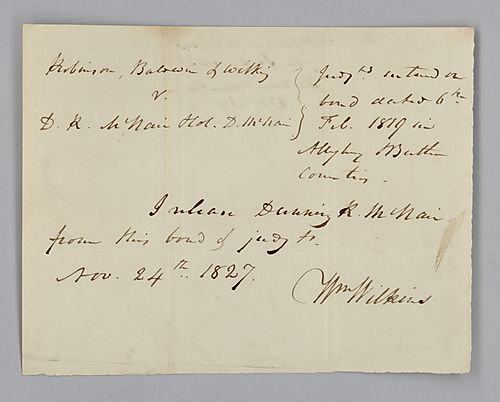 Robinson, Baldwin & Wilkins
v.
D. R. McNair Hol. D. McNair
Judgts entered on
bond dated 6th
Feb. 1819 in
Allghy Butler
Counties.
I release Dunning R. McNair
from this bond & judgts.
Nov. 24th 1827.
Wm Wilkins